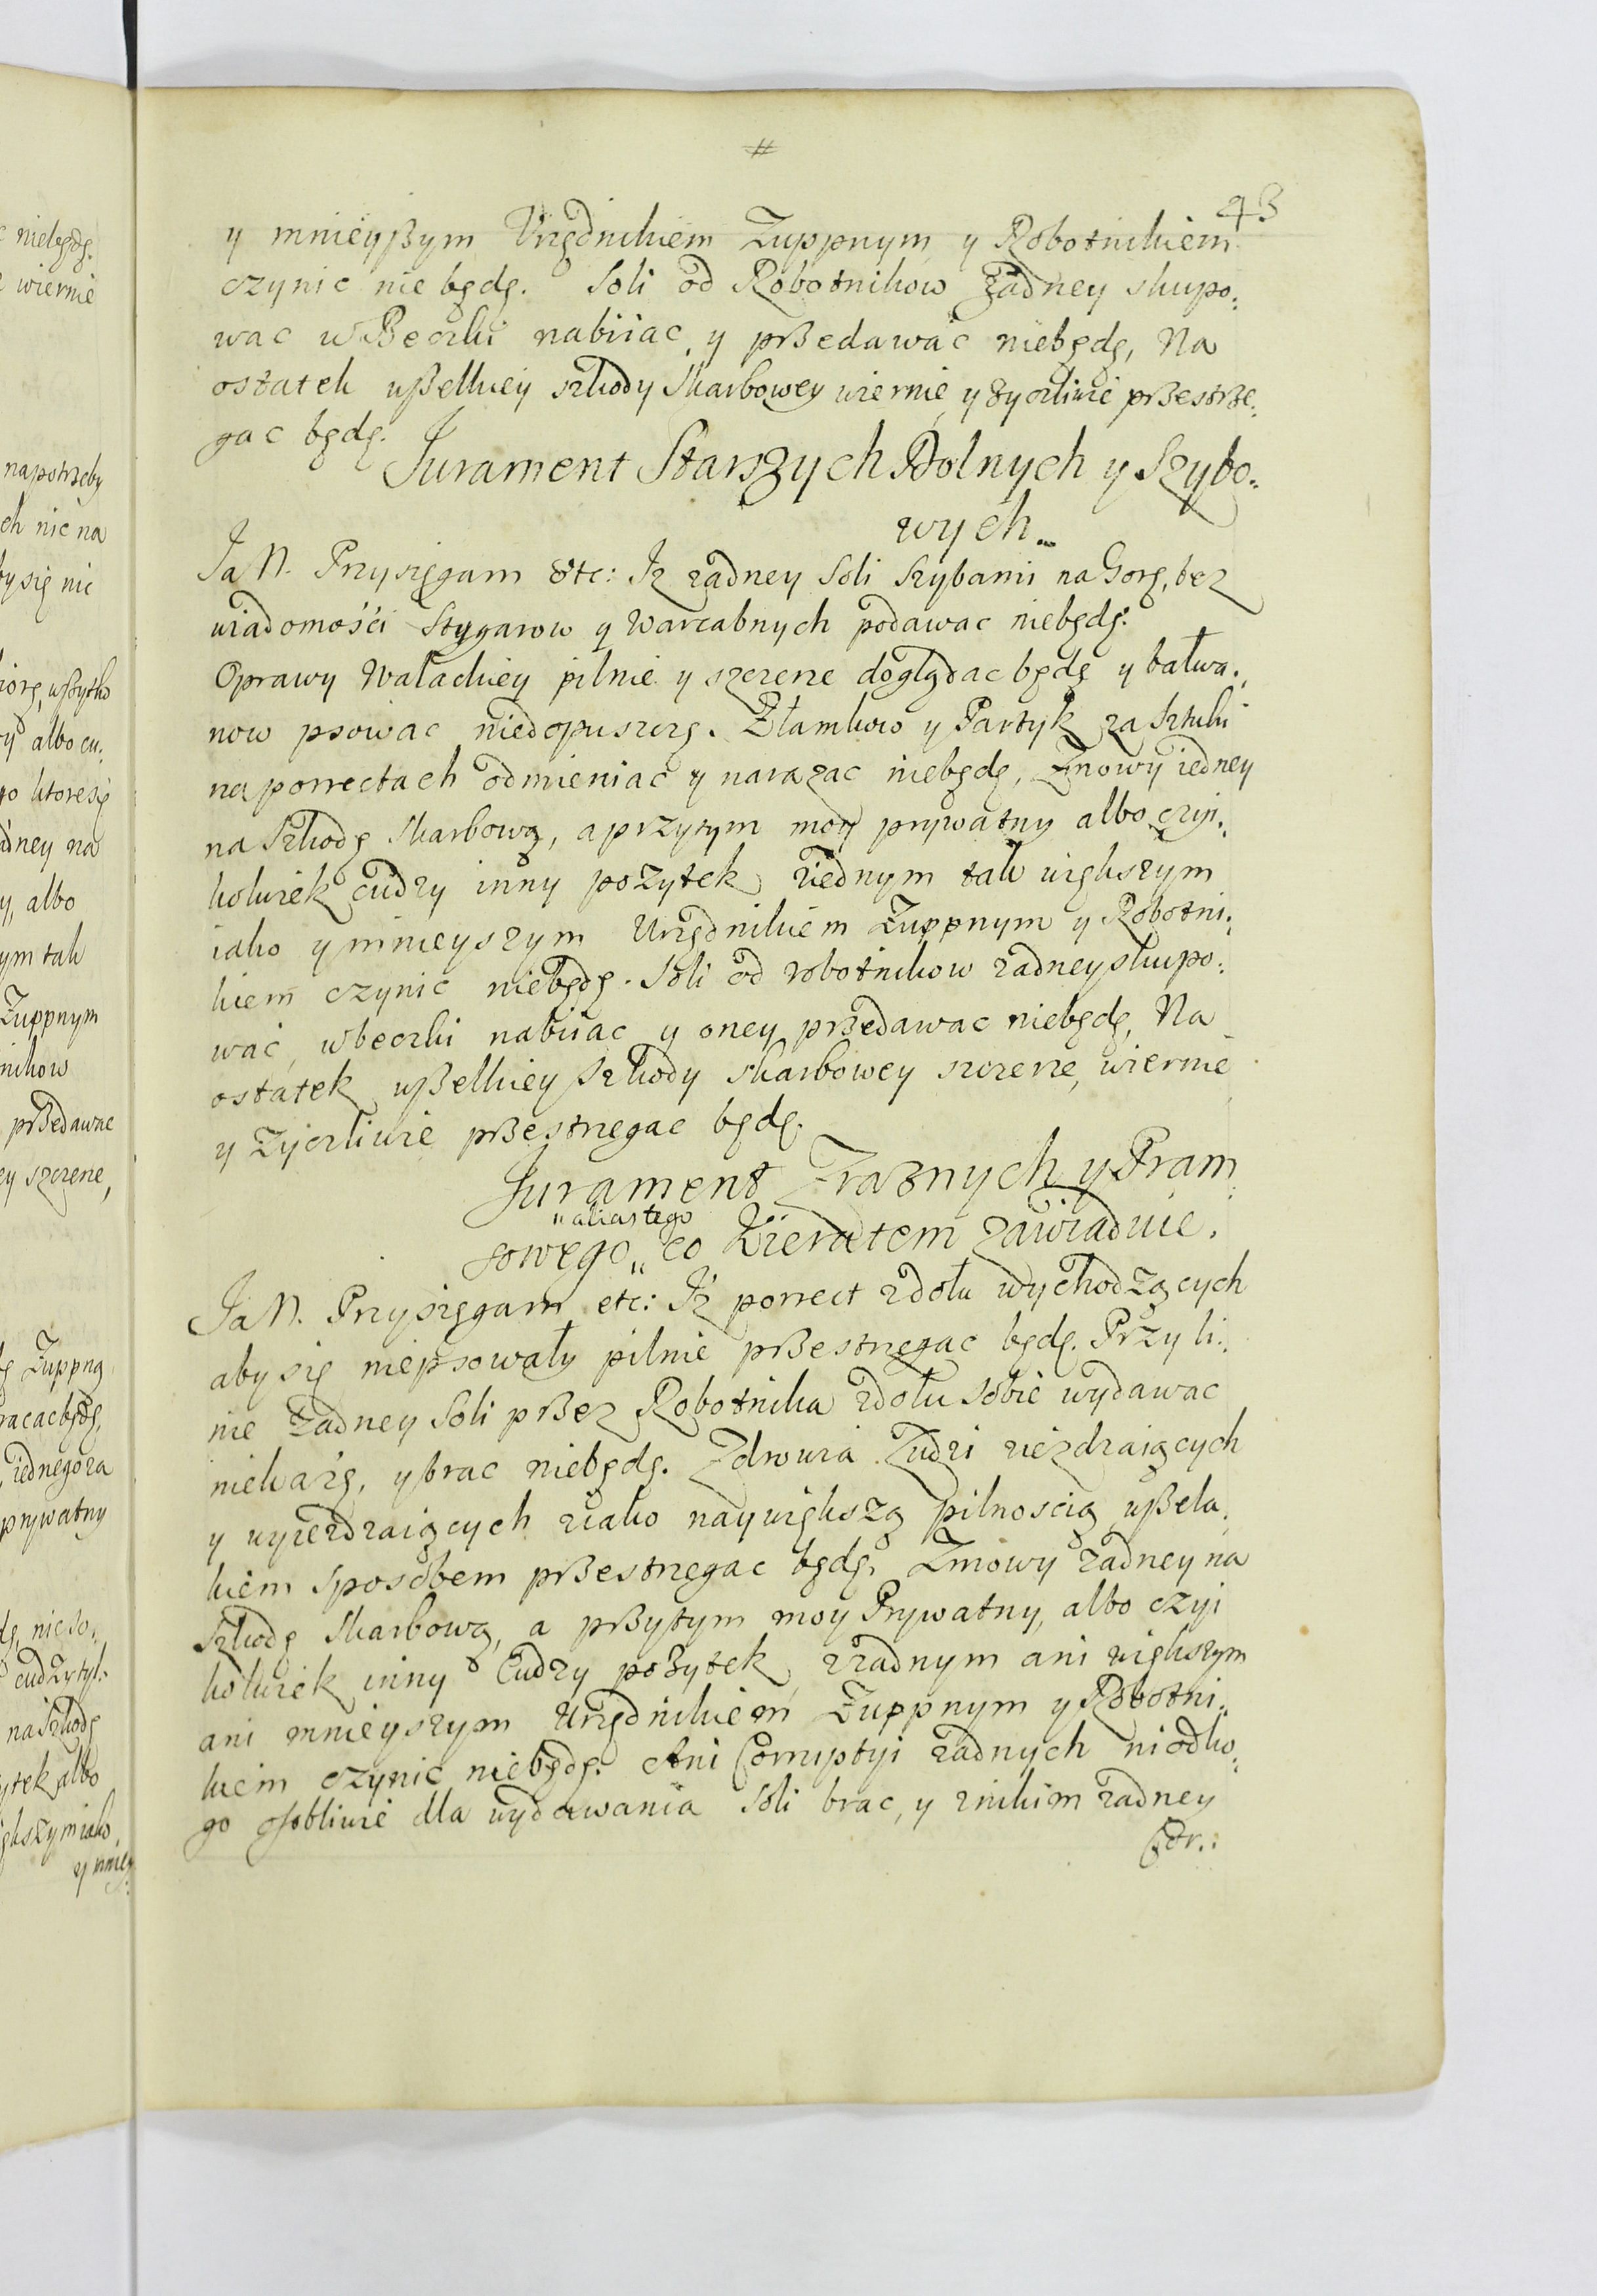 #
43
y mnieyßym Urzędnikiem Żuppnym y Robotnikiem
czynic nie będę. Soli od Robotnikow żadney skupo:
wac w Beczki nabiiac, y przedawac niebędę, Na
ostatek wßelkiey szkody Skarbowey wiernie y życzliwie przestrze:
gac będę.
Jurament Starszych Dolnych y Szybo:
wych.
Ja N. Przysięgam etc: Iz zadney Soli Szybami na Gorę, bez
wiadomości Stygarow y Warcabnych podawac niebędę.
Oprawy Walackiey pilnie y szczerze doglądac będę y bałwa:
now psowac niedopuszczę. Złamkow y Partyk za Sztuki
na porrectach odmieniac y narazac niebędę, Zmowy iedney
na Szkodę Skarbową, a przytym moy prywatny albo czyi:
kolwiek cudzy inny pożytek ziednym tak większym
iako y mnieyszym Urzędnikiem Żuppnym y Robotni:
kiem czynic niebędę. Soli od robotnikow zadney skupo:
wać, wbeczki nabiiac y oney przedawac niebędę, Na
ostatek wßelkiey Szkody skarbowey szczerze, wiernie
y Zyczliwie przestrzegac będę.
Jurament Zraznych y Tram
"alias tego
sowego „ co Kieratem zawiaduie.
Ja N. Przysięgam etc: Iż porrect zdołu wychodzących
aby się niepsowały pilnie przestrzegac będę. Przy li:
nie żadney Soli przez Robotnika zdołu sobie wydawac
niekażę, y brac niebędę. Zdrowia Ludzi ziezdzaiących
y wyiezdzaiących ziako naywiększą pilnoscią wßela:
kiem sposobem przestrzegac będę. Zmowy żadney na
Szkodę Skarbową, a przytym moy Prywatny, albo czyi
kolwiek inny Cudzy pożytek, zzadnym ani większym
ani mnieyszym Urzędnikiem Żuppnym y Robotni:
kiem czynic niebędę. Ani Corruptyi zadnych niodko:
go osobliwie dla wydawania Soli brac, y znikim zadney